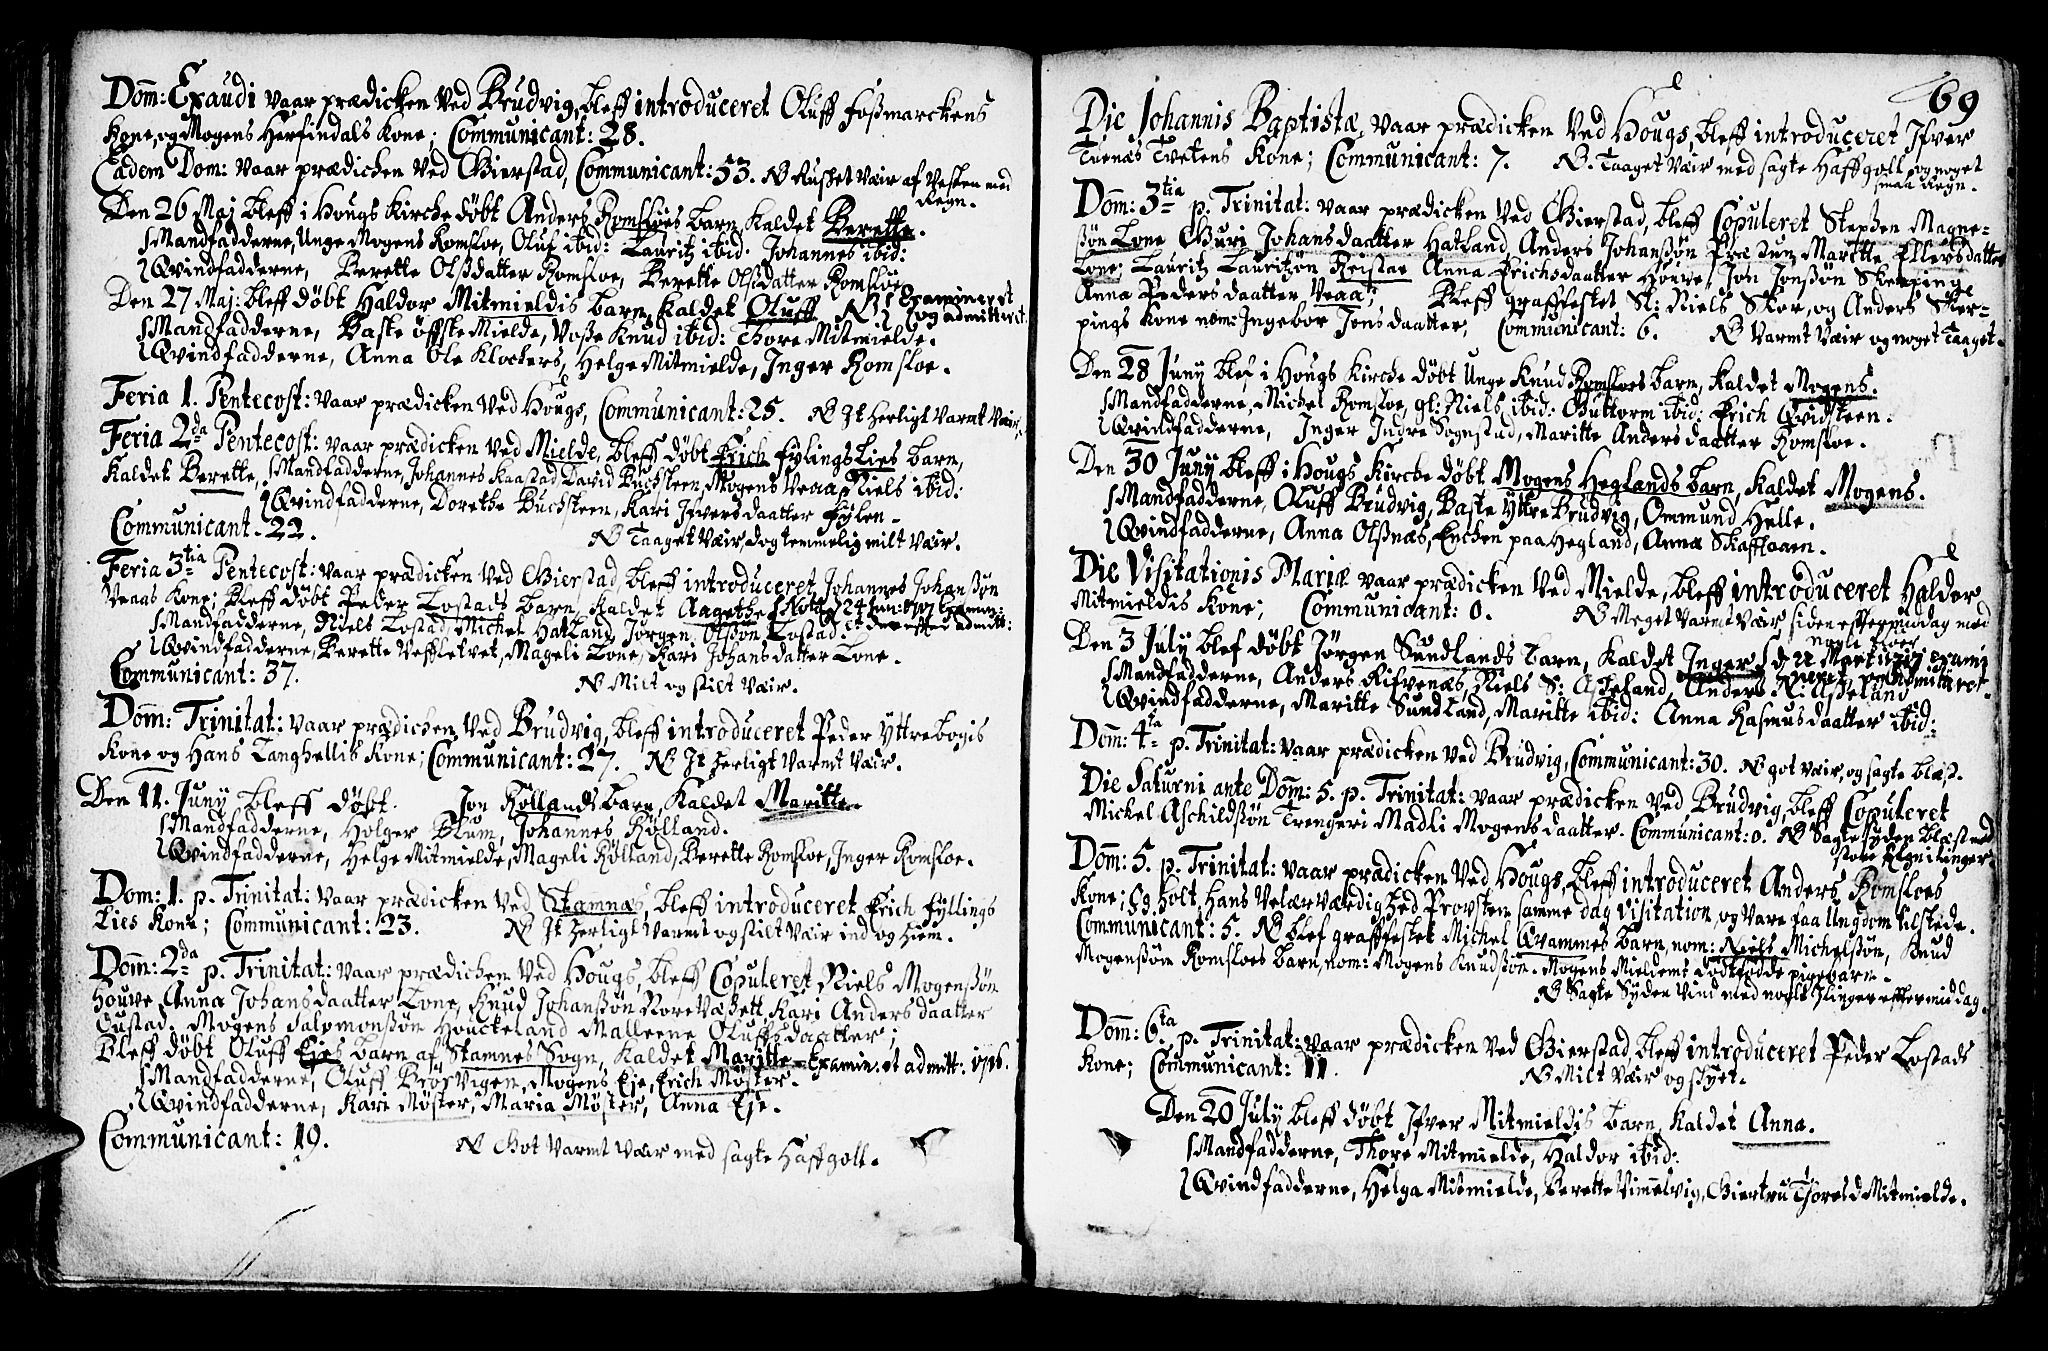 Dom: Exaudi vaar prædicken Ved Brudvig, bleff introduceret Oluff Fossmarckens
Kone, og Mogens Herfindals Kone; Communicant: 28.
Eadem Dom: vaar prædichen Ved Gierstad, Communicant: 53. NB Rusket Væir af Vesten med
Regn.
Den 26 Maj bleff i Hougs Kirche döbt Anders Romsloes barn, Kaldet Berette.
Mandfadderne, Unge Mogens Romsloe, Oluf ibid: Lauritz ibid. Johannes ibid:
Qvindfadderne, Berette Olssdatter Romsloe, Berette Olssdatter Romsloe
Den 27 Maj: bleff döbt Haldor Mitmieldis barn, Kaldet Oluff NB Examineret
og admitteret.
Mandfadderne, Baste öffste Mielde, Vosse Knud ibid: Thore Mitmielde.
Qvindfadderne, Anna Ole Klockers, Helge Mitmielde, Inger Romsloe.
Feria 1. Pentecost: vaar prædicken Ved Hougs, Communicant: 25. NB It herligt Varmt Væir.
Feria 2da Pentecost: vaar prædicken ved Mielde, bleff döbt Erich Fylings Lies barn,
Kaldet Berette, Mandfadderne, Johannes Kaastad, David Buchsteen, Mogens Veaa, Niels ibid:
Qvindfadderne, Dorethe Buchsteen, Kari Ifversdaatter Fylen.
Communicant. 22. NB Taaget Væir, dog temmelig milt Væir.
Feria 3tia Pentecost: vaar prædicken Ved Gierstad, bleff introduceret Johannes Johanssön
Veaas Kone; Bleff döbt Peder Lostads barn, Kaldet Aagethe
Mandfadderne, Niels Lostad, Michel Hatland, Jörgen Olssön Lostad.
Qvindfadderne, Berette Veffletvet, Mageli Lone, Kari Johansdatter Lone.
Communicant: 37. NB Milt og stilt Væir.
Dom: Trinitat: vaar prædichen Ved Brudvig, bleff introduceret Peder Yttrebogis
Kone og Hans Langhellis Kone; Communicant: 27. NB It herligt Varmt Væir.
Den 11. Juny bleff döbt. Jon Röllands barn, Kaldet Maritte.
Mandfadderne, Holger Blum, Johannes Rölland.
Qvindfadderne, Helge Mitmielde, Mageli Rölland, Berette Romsloe, Inger Romsloe.
Dom: 1. p. Trinitat: vaar prædicken ved Stamnæs, bleff introduceret Erich Fyllings
Lies Kone; Communicant: 23. NB It herligt Varmt og stilt Væir ind og hiem.
Dom: 2da p. Trinitat: vaar prædichen Ved Hougs, bleff Copuleret Niels Mogenssön
Houve Anna Johansdaatter Lone, Knud Johanssön Nore Væsett, Kari Andersdaatter
Custad. Mogens Salomonssön Houckeland Malleene Oluffsdaatter;
Bleff döbt Oluff Ejes barn af Stamnes Sogn, Kaldet Maritte Examin: et admitt: 1716.
Mandfadderne, Oluff Brörvigen, Mogens Eje, Erich Möster.
Qvindfadderne, Kari Möster, Maria Möster, Anna Eje.
Communicant: 19. NB Got Varmt Vær med sagte Haffgoll.
69
Die Johannis Baptistæ, vaar prædicken Ved Hougs, bleff introduceret Ifver
Tuenæs Tvetens Kone; Communicant: 7. NB. Taaget Væir med sagte Haffgoll og noget
smaa Regn.
Dom: 3tia p. Trinitat: vaar prædicken Ved Gierstad, bleff Copuleret Stephen Magne-
ssön Lone Guri Johansdaatter Hatland, Anders Johanssön Præstun Marette Ellersdatter
Lone, Lauritz Lauritzön Reistae Anna Erichsdaatter Houve, Jon Jonssön Skerping
Anna Pedersdaatter Veaa; Bleff grafffestet Sl: Niels Skor, og Anders Sker-
pings Kone nom: Ingebor Jonsdaatter, Communicant: 6. NB Varmt Væir og noget Taaget.
Den 28 Juny blef i Hougs Kirche döbt Unge Knud Romsloes barn, Kaldet Mogens.
Mandfadderne, Michel Romsloe, gl: Niels ibid: Guttorm ibid: Erich Qvidsteen.
Qvindfadderne, Inger Indre Sognstad, Maritte Andersdaatter Romsloe.
Den 30 Juny bleff i Hougs Kirche döbt Mogens Heglands barn, Kaldet Mogens.
Mandfadderne, Oluff Brudvig, Baste Yttre Brudvig, Ommund Helle.
Qvindfadderne, Anna Olssnæs, Enchen paa Hegland, Anna Skafflaaen.
Die Visitationis Mariæ vaar prædicken Ved Mielde, bleff introduceret Haldor
Mitmieldis Kone; Communicant: 0. NB Meget Varmt Vær siden effter middag med
Den 3 July blef döbt Jörgen Sundlands barn, Kaldet Inger
Mandfadderne, Anders Rifvenæs, Niels S: Asheland, Anders N: Asheland
Qvindfadderne, Maritte Sundland, Maritte ibid: Anna Rasmusdaatter ibid:
Dom: 4ta p. Trinitat: vaar prædicken ved Brudvig, Communicant: 30. NB got Væir, og sagte blæst.
Die Saturni ante Dom: 5. p. Trinitat: vaar prædicken Ved Brudvig, bleff Copuleret
Mickel Aschildssön Trengeri Madli Mogensdaatter. Communicant: 0. NB Sagte Syden blæst med
store Regnilinger
Dom: 5. p. Trinitat: vaar prædicken Ved Hougs, bleff introduceret Anders Romsloes
Kone; holt Hans Velærværdighed Provsten samme dag Visitation, og Vare faa Ungdom tilstede.
Communicant: 5. NB blef grafffestet Michel Qvammes barn, nom: Niels Michelssön, Knud
Mogenssön Romsloes barn, nom: Mogens Knudssön. Mogens Mieldems dödfödde pigebarn.
NB Sagte Syden Vind med nogle Ilinger effter middag.
Dom: 6ta p. Trinitat: vaar prædicken ved Gierstad, bleff introduceret Peder Lostads
Kone; Communicant: 11. NB Milt Væir og skyet.
Den 20 July bleff döbt Ifver Mitmieldis barn, Kaldet Anna.
Mandfadderne, Thore Mitmielde, Haldor ibid:
Qvindfadderne, Helga Mitmielde, Berette Vimmelvig, Giertru Tiöreld Mitmielde.